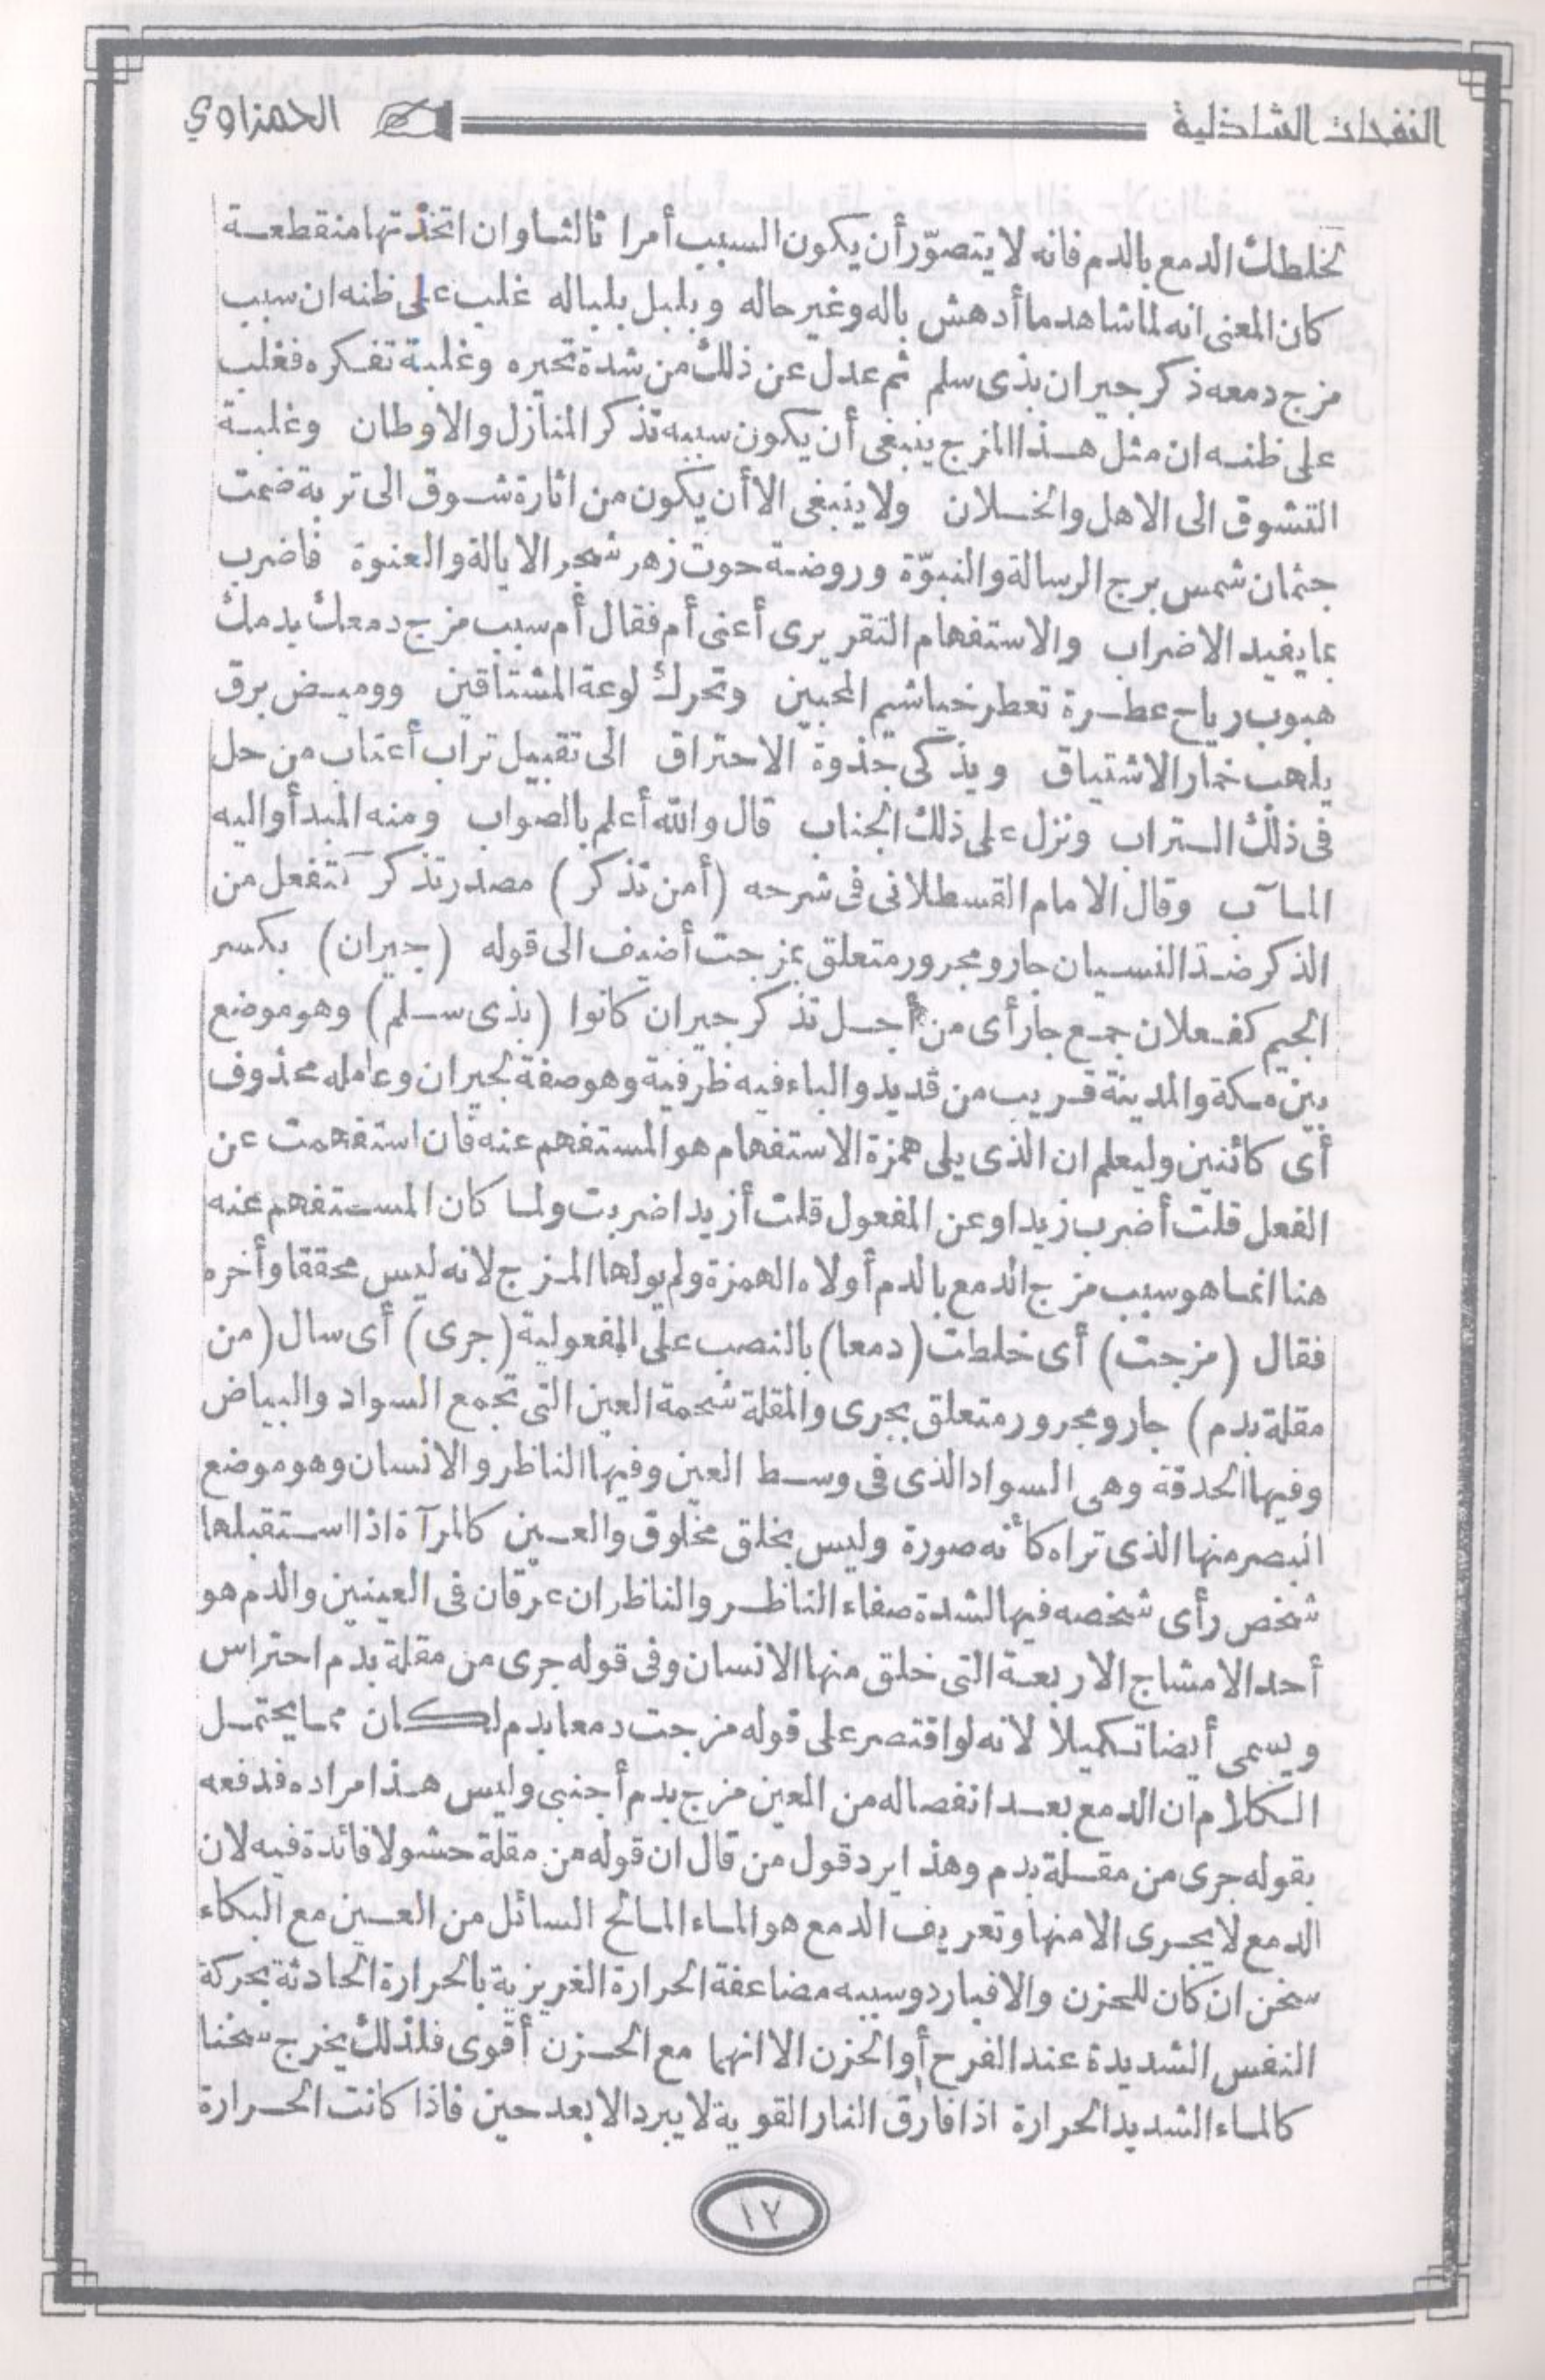 النفحات الشاذلية
الحمزاوي
لخلطك الدمع بالدم فانه لا يتصوّر أن يكون السبب أمرا ثالثا وان اتخذتها منقطعة
كان المعنى انه لما شاهد ما أدهش باله وغير حاله وبلبل بلباله غلب على ظنه ان سبب
مزج دمعه ذكر جيران بذى سلم ثم عدل عن ذلك من شدة تحيره وغلبة تفكره فغلب
على ظنه ان مثل هذا المزج ينبغى أن يكون سببه تذكر المنازل والاوطان وغلبة
التشوق الى الاهل والخلان ولا ينبغى الا أن يكون من اثارة شوق الى تربة ضمت
جثمان شمس برج الرسالة والنبوّة وروضة حوت زهر شجر الايالة والعنوة فاضرب
بما يفيد الاضراب والاستفهام التقريرى أعنى أم فقال أم سبب مزج دمعك بدمك
هبوب رياح عطرة تعطر خياشيم المحبين وتحرك لوعة المشتاقين ووميض برق
يلهب خمار الاشتياق ويذكى جذوة الاحتراق الى تقبيل تراب أعتاب من حل
فى ذلك التراب ونزل على ذلك الجناب قال والله أعلم بالصواب ومنه المبدأ واليه
المآب وقال الامام القسطلانى فى شرحه (أمن تذكر) مصدر تذكر كتفعل من
الذكر ضدّ النسيان جار ومجرور متعلق بمزجت أضيف الى قوله (جيران) بكسر
الجيم كفعلان جمع جار أى من أجل تذكر جيران كانوا (بذى سلم) وهو موضع
بين مكة والمدينة قريب من قديد والباء فيه ظرفية وهو صفة لجيران وعامله محذوف
أى كائنين وليعلم ان الذى يلى همزة الاستفهام هو المستفهم عنه فان استفهمت عن
الفعل قلت أضرب زيدا وعن المفعول قلت أزيدا ضربت ولما كان المستفهم عنه
هنا انما هو سبب مزج الدمع بالدم أولاه الهمزة ولم يولها المزج لانه ليس محققا وأخره
فقال (مزجت) أى خلطت (دمعا) بالنصب على المفعولية (جرى) أى سال (من
مقلة بدم) جار ومجرور متعلق بجرى والمقلة شحمة العين التى تجمع السواد والبياض
وفيها الحدقة وهى السواد الذى فى وسط العين وفيها الناظر والانسان وهو موضع
البصر منها الذى تراه كأنه صورة وليس بخلق مخلوق والعين كالمرآة اذا استقبلها
شخص رأى شخصه فيها لشدة صفاء الناظر والناظران عرقان فى العينين والدم هو
أحد الامشاج الاربعة التى خلق منها الانسان وفى قوله جرى من مقلة بدم احتراس
ويسمى أيضا تكميلا لانه لو اقتصر على قوله مزجت دمعا بدم لكان مما يحتمل
الكلام ان الدمع بعد انفصاله من العين مزج بدم أجنبى وليس هذا مراده فدفعه
بقوله جرى من مقلة بدم وهذا يرد قول من قال ان قوله من مقلة حشو لا فائدة فيه لان
الدمع لا يجرى الا منها وتعريف الدمع هو الماء المالح السائل من العين مع البكاء
سخن ان كان للحزن والا فبارد وسببه مضاعفة الحرارة الغريزية بالحرارة الحادثة بحركة
النفس الشديدة عند الفرح أو الحزن الا انها مع الحزن أقوى فلذلك يخرج سخنا
كالماء الشديد الحرارة اذا فارق النار القوية لا يبرد الا بعد حين فاذا كانت الحرارة
١٧